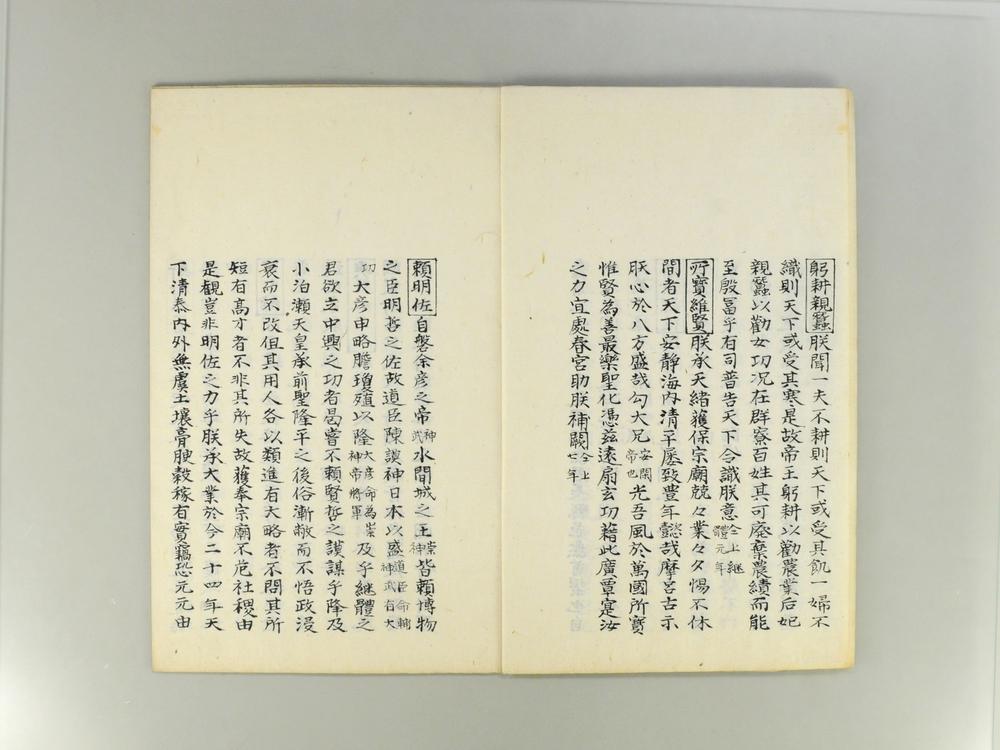 躬耕親蠶朕聞一夫不耕則天下或受其飢一婦不
織則天下或受其寒是故帝王躬耕以勸農業后妃
親蠶以勸女功况在群寮百姓其可廃棄農績而能
至殷冨乎有司普告天下令識朕意今上継體元年
所寶維賢朕承天緒獲保宗廟兢々業々夕惕不休
間者天下安静海内清平屡致豊年懿哉摩呂古示
朕心於八方盛哉勾大兄安閑帝也光吾風於萬國所寶
惟賢為善最樂聖化憑茲遠扇玄功藉此廣覃寔汝
之力宜處春宮助朕補闕今上七年
頼明佐自磐余彦之帝神武水間城之王崇神皆頼博物
之臣明哲之佐故道臣陳謨神日本以盛道臣命輔神武有大
功大彦申略膽瓊殖以隆大彦命為崇神帝将軍及乎継體之
君欲立中興之功者曷嘗不頼賢哲之謨謀乎降及
小泊瀬天皇承前聖隆平之後俗漸敝而不悟政浸
衰而不改但其用人各以類進有大略者不問其所
短有高才者不非其所失故獲奉宗廟不危社稷由
是観豈非明佐之力乎朕承大業於今二十四年天
下清泰内外無虞土壌膏腴穀稼有實竊恐元元由